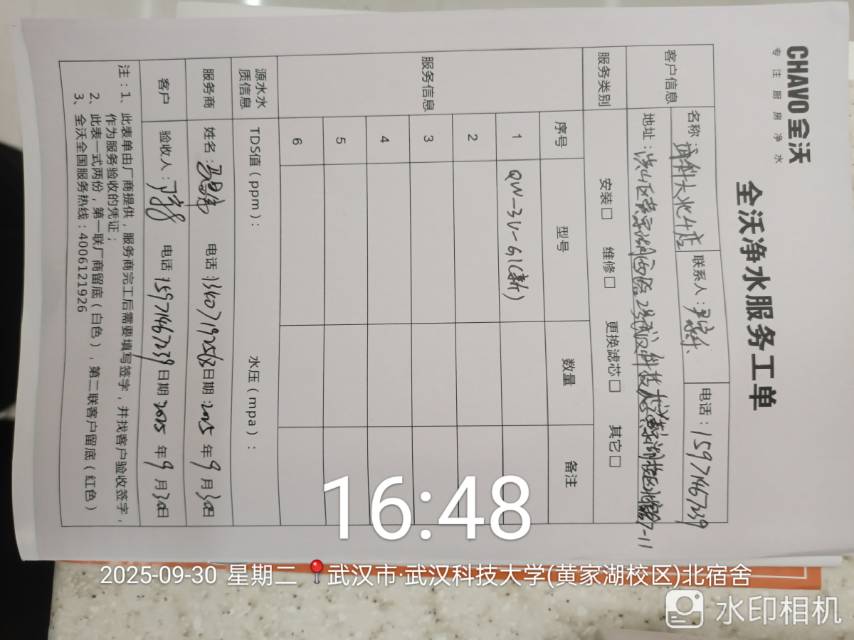 CHAVO 全沃
专注厨房净水
全沃净水服务工单
客户信息
名称：武科大北斗店
联系人：
电话：15971467239
地址：洪山区黄家湖西路2号武汉科技大学黄家湖校区
服务类别
安装□ 维修□ 更换滤芯□ 其它□
服务信息
序号 型号 数量 备注
1 QW-3V-61(新)
2
3
4
5
6
源水水质信息
TDS值（ppm）： 水压（mpa）：
服务商 姓名： 电话 日期：2025年9月30日
客户 验收人： 电话 15971467239 日期：2025年9月30日
注：1、此表单由厂商提供，服务商完工后需要填写签字，并找客户验收签字，
作为服务验收的凭证；
2、此表一式两份，第一联厂商留底（白色），第二联客户留底（红色）
3、全沃全国服务热线：4006121926
16:48
2025-09-30 星期二 武汉市·武汉科技大学(黄家湖校区)北宿舍
水印相机